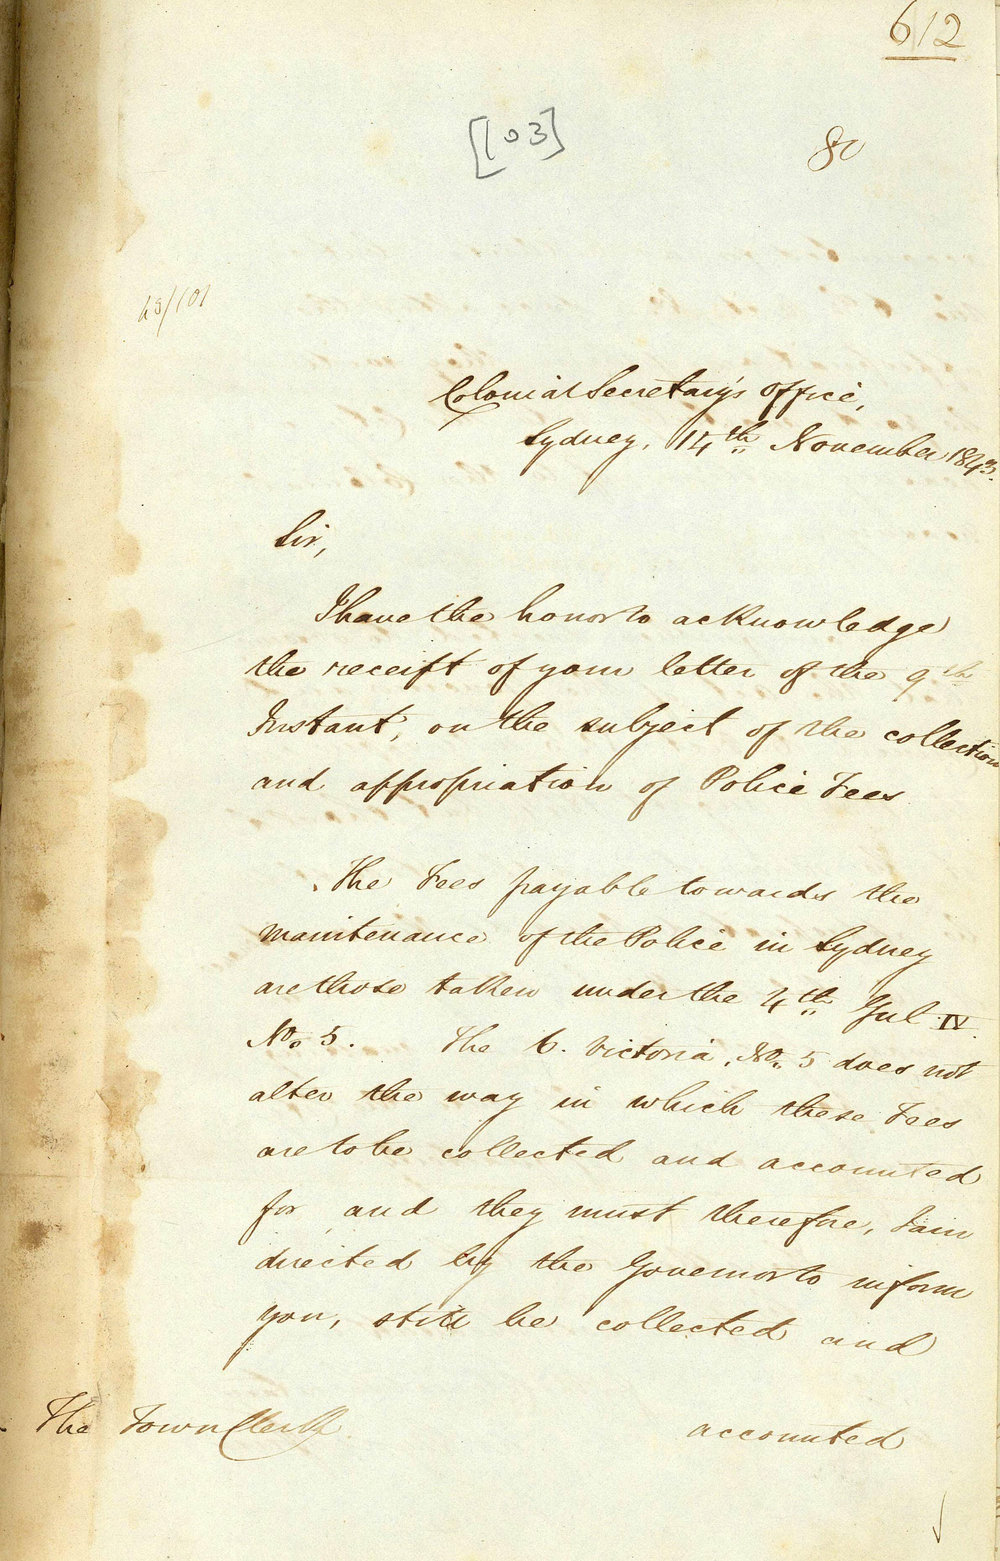 612
[103]
80
43/101
Colonial Secretary's Office,
Sydney, 14th November 1843.
Sir,
I have the honor to acknowledge
the receipt of your letter of the 9th
Instant, on the subject of the collection
and appropriation of Police Fees
The Fees payable towards the
maintenance of the Police in Sydney
are those taken under the 4th Gul IV
No. 5. The 6. Victoria, No. 5 does not
alter the way in which these Fees
are to be collected and accounted
for and they must therefore, I am
directed by the Governor to inform
you, still be collected and
The Town Clerk
accounted